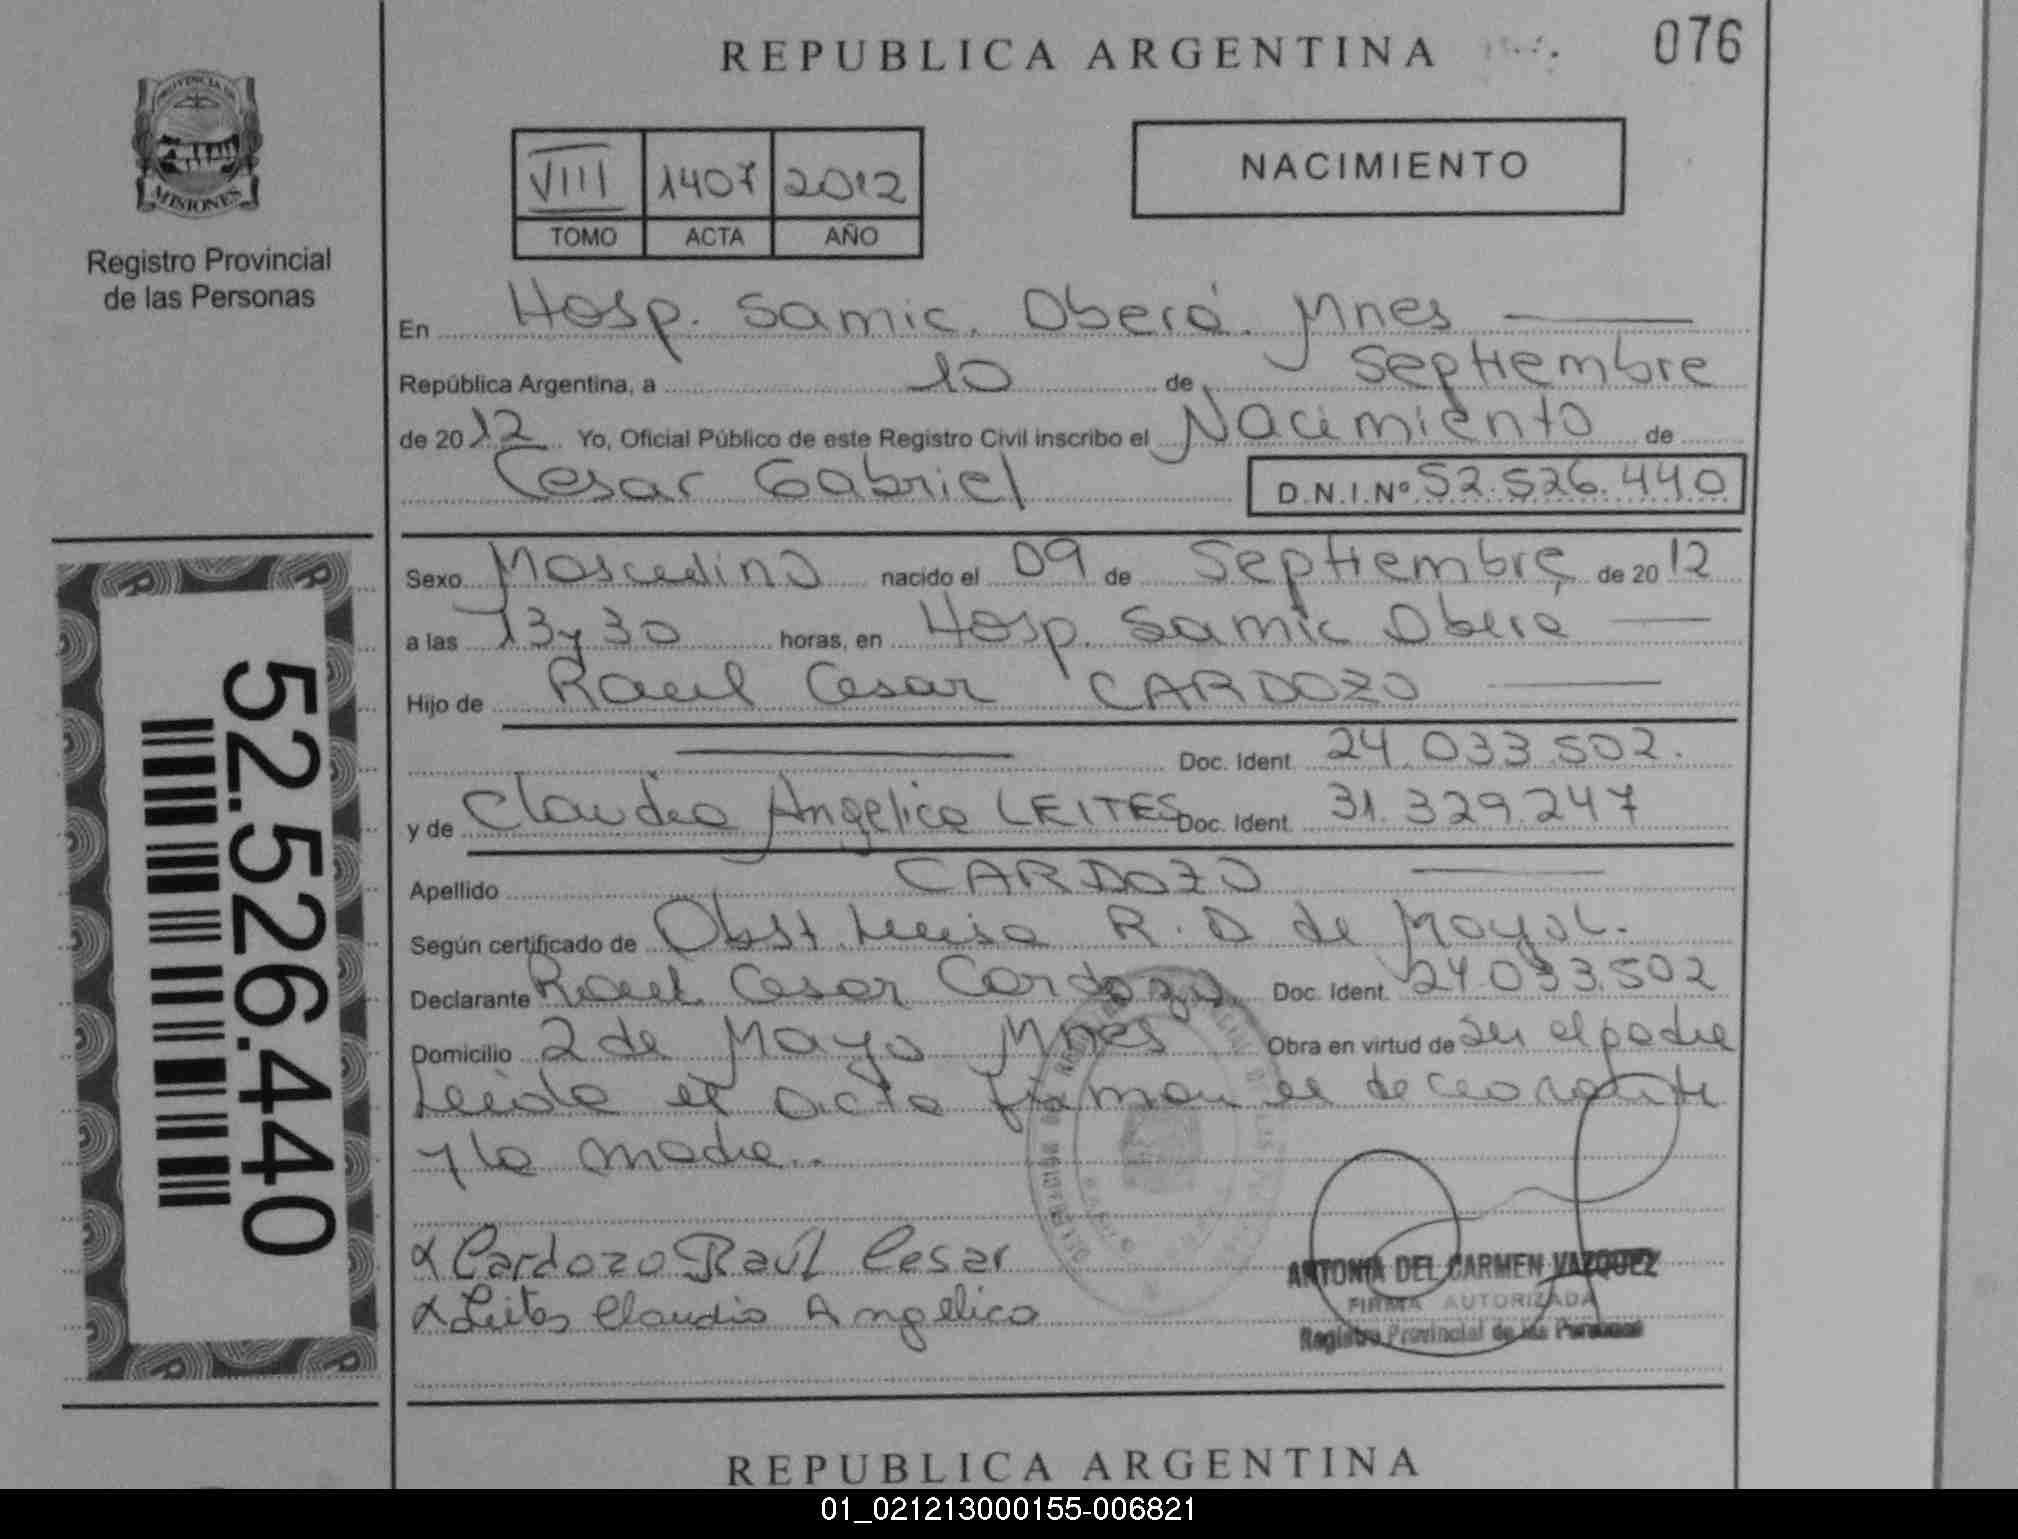 REPUBLICA ARGENTINA
076
PROVINCIA DE
MISIONES
Registro Provincial
de las Personas
VIII 1407 2012
TOMO ACTA AÑO
NACIMIENTO
En Hosp. Samic. Oberá. Mnes
República Argentina, a 10 de Septiembre
de 2012 Yo, Oficial Público de este Registro Civil inscribo el Nacimiento de
Cesar Gabriel D.N.I.Nº 52.526.440
Sexo Masculino nacido el 09 de Septiembre de 2012
a las 13y30 horas, en Hosp. Samic Oberá
Hijo de Raul Cesar CARDOZO
Doc. Ident. 24.033.502.
y de Claudia Angelica LEITES Doc. Ident. 31.329.247
Apellido CARDOZO
Según certificado de Obst. Luisa R. D de Mayol.
Declarante Raul Cesar Cardozo Doc. Ident. 24.033.502
Domicilio 2 de Mayo Mnes Obra en virtud de ser el padre
Leida el acta firman el declarante
y la madre..
x Cardozo Raul Cesar
x Leites Claudia Angelica
ANTONIA DEL CARMEN VAZQUEZ
FIRMA AUTORIZADA
Registro Provincial de las Personas
52.526.440
REPUBLICA ARGENTINA
01_021213000155-006821